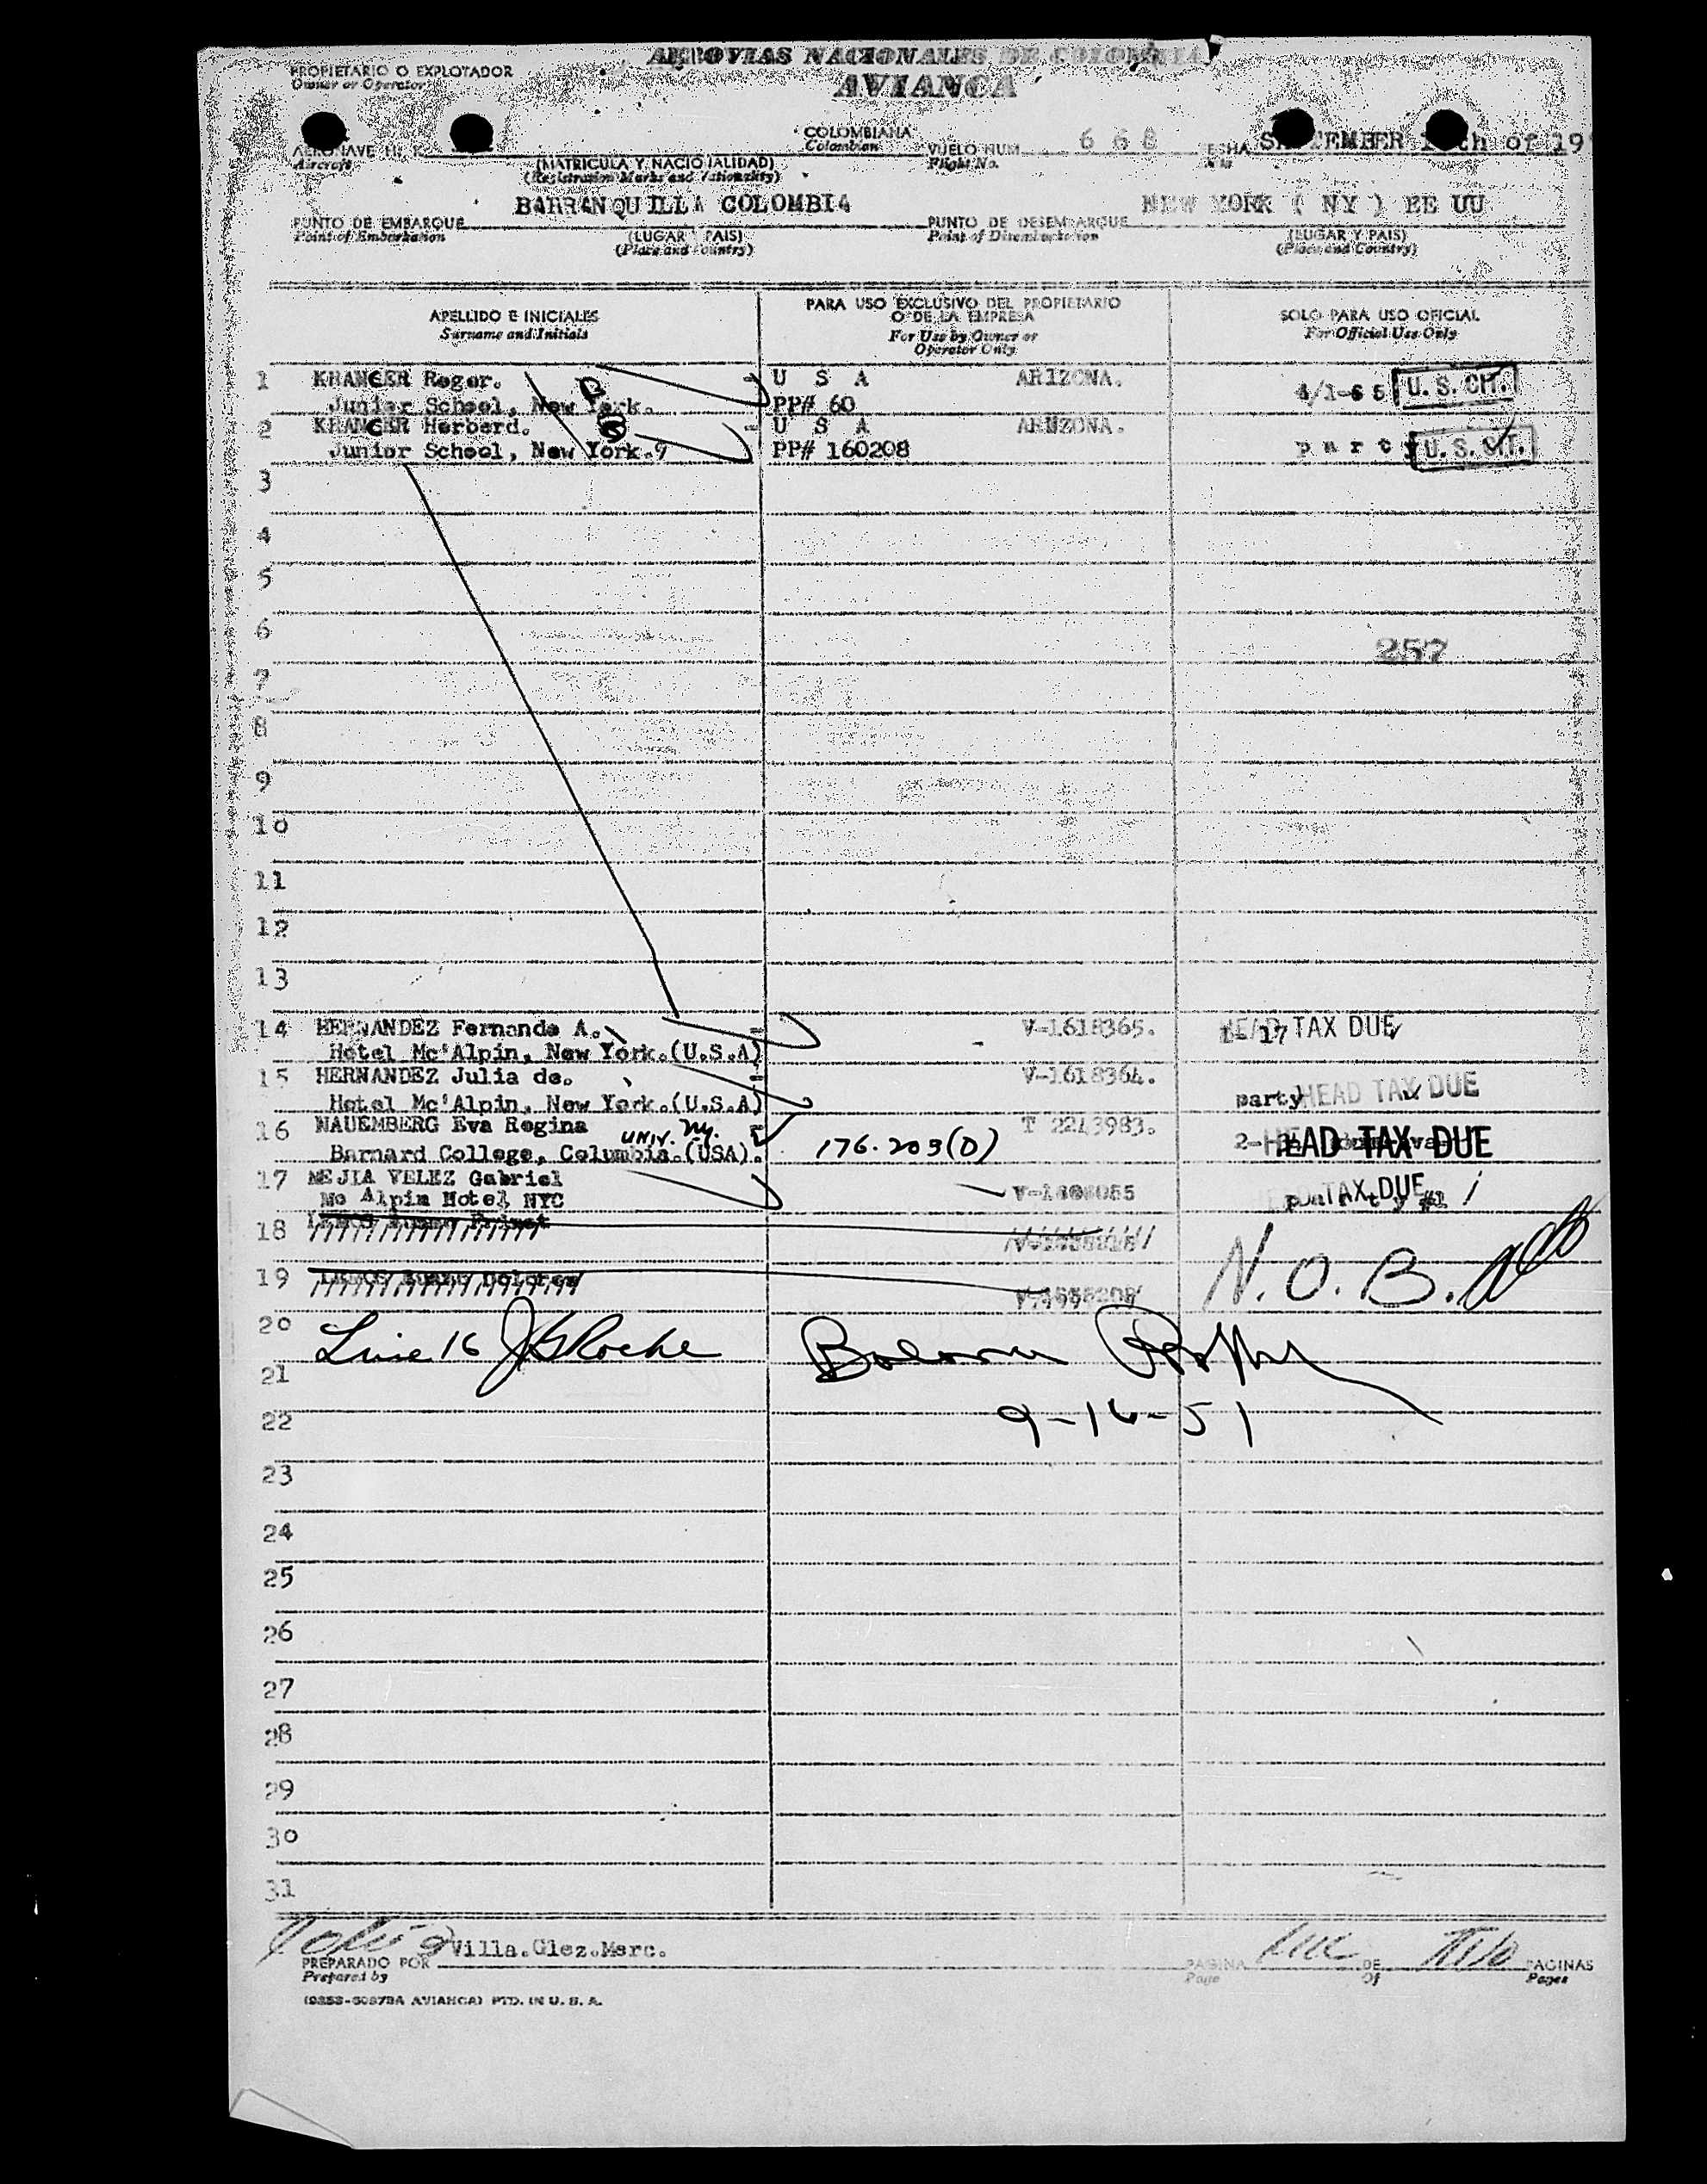 AEROVIAS NACIONALES DE COLOMBIA
AVIANCA
PROPIETARIO O EXPLOTADOR
Owner or Operator
COLOMBIANA
Colombian
VUELO NUM. 668
Flight No.
SEPTEMBER th of 19
Aircraft
(MATRICULA Y NACIONALIDAD)
(Registration Marks and Nationality)
BARRANQUILLA COLOMBIA
NEW YORK ( NY ) EE UU
PUNTO DE EMBARQUE
Point of Embarkation
(LUGAR PAIS)
(Place and Country)
PUNTO DE DESEMBARQUE
Point of Disembarkation
(LUGAR Y PAIS)
(Place and Country)
APELLIDO E INICIALES
Surname and Initials
PARA USO EXCLUSIVO DEL PROPIETARIO
O DE LA EMPRESA
For Use by Owner or
Operator Only
SOLO PARA USO OFICIAL
For Official Use Only
1 KRANGER Roger. - U S A ARIZONA. 4/1-65 U.S. CIT.
Junior School, New York. PP# 60
2 KRANGER Herberd. - U S A ARIZONA. party U.S. CIT.
Junior School, New York. PP# 160208
3
4
5
6
257
7
8
9
10
11
12
13
14 HERNANDEZ Fernando A. - V-1618365. HEAD TAX DUE
Hotel Mc'Alpin, New York.(U.S.A)
15 HERNANDEZ Julia de. - V-1618364. party HEAD TAX DUE
Hotel Mc'Alpin, New York.(U.S.A)
16 NAUEMBERG Eva Regina UNIV. NY. T 2243983. HEAD TAX DUE
Barnard College, Columbia.(USA). 176.203(D)
17 MEJIA VELEZ Gabriel
Mc Alpin Hotel NYC TAX DUE party #1
18
19 N.O.B.
20 Line 16 JG Roche
21
22 9-16-51
23
24
25
26
27
28
29
30
31
Villa.Glez.Marc.
PREPARADO POR
Prepared by
PAGINA DE PAGINAS
Page Of Pages
AVIANCA) PTD. IN U. S. A.